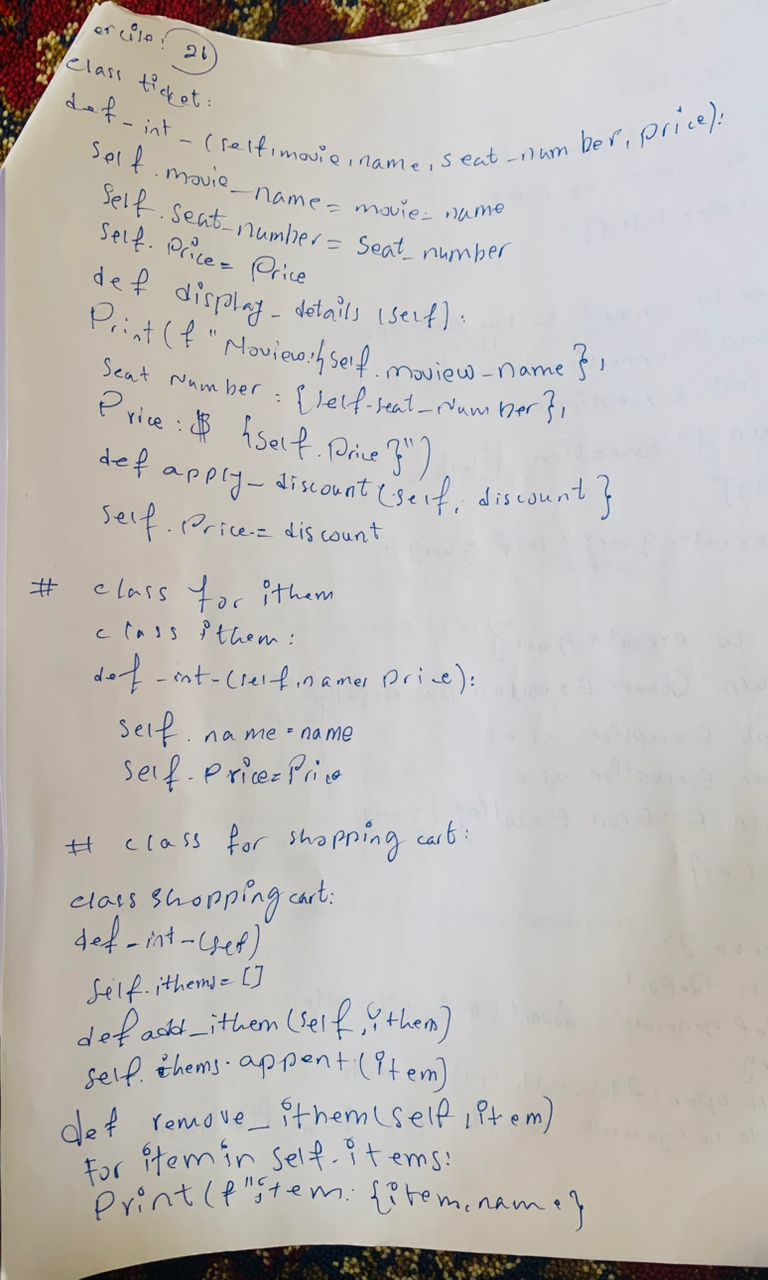 ercise: 21
class ticket:
def_int_(self,movie,name,seat_number,price):
self.movie_name=movie_name
self.seat_number=seat_number
self.price=price
def display_details(self):
Print(f"Moview:{self.moview_name},
seat Number:{self.seat_Number},
Price:$ {self.price}")
def apply_discount(self, discount}
self.price-=discount
# class for ithem
class ithem:
def_int_(self,name,price):
self.name=name
self.price=price
# class for shopping cart:
class shopping cart:
def_int_(sef)
self.ithems=[]
def add_ithem(self,ithem)
self.ithems.appent(item)
def remove_ithem(self,item)
For item in self.items:
Print(f"item: {item.name}